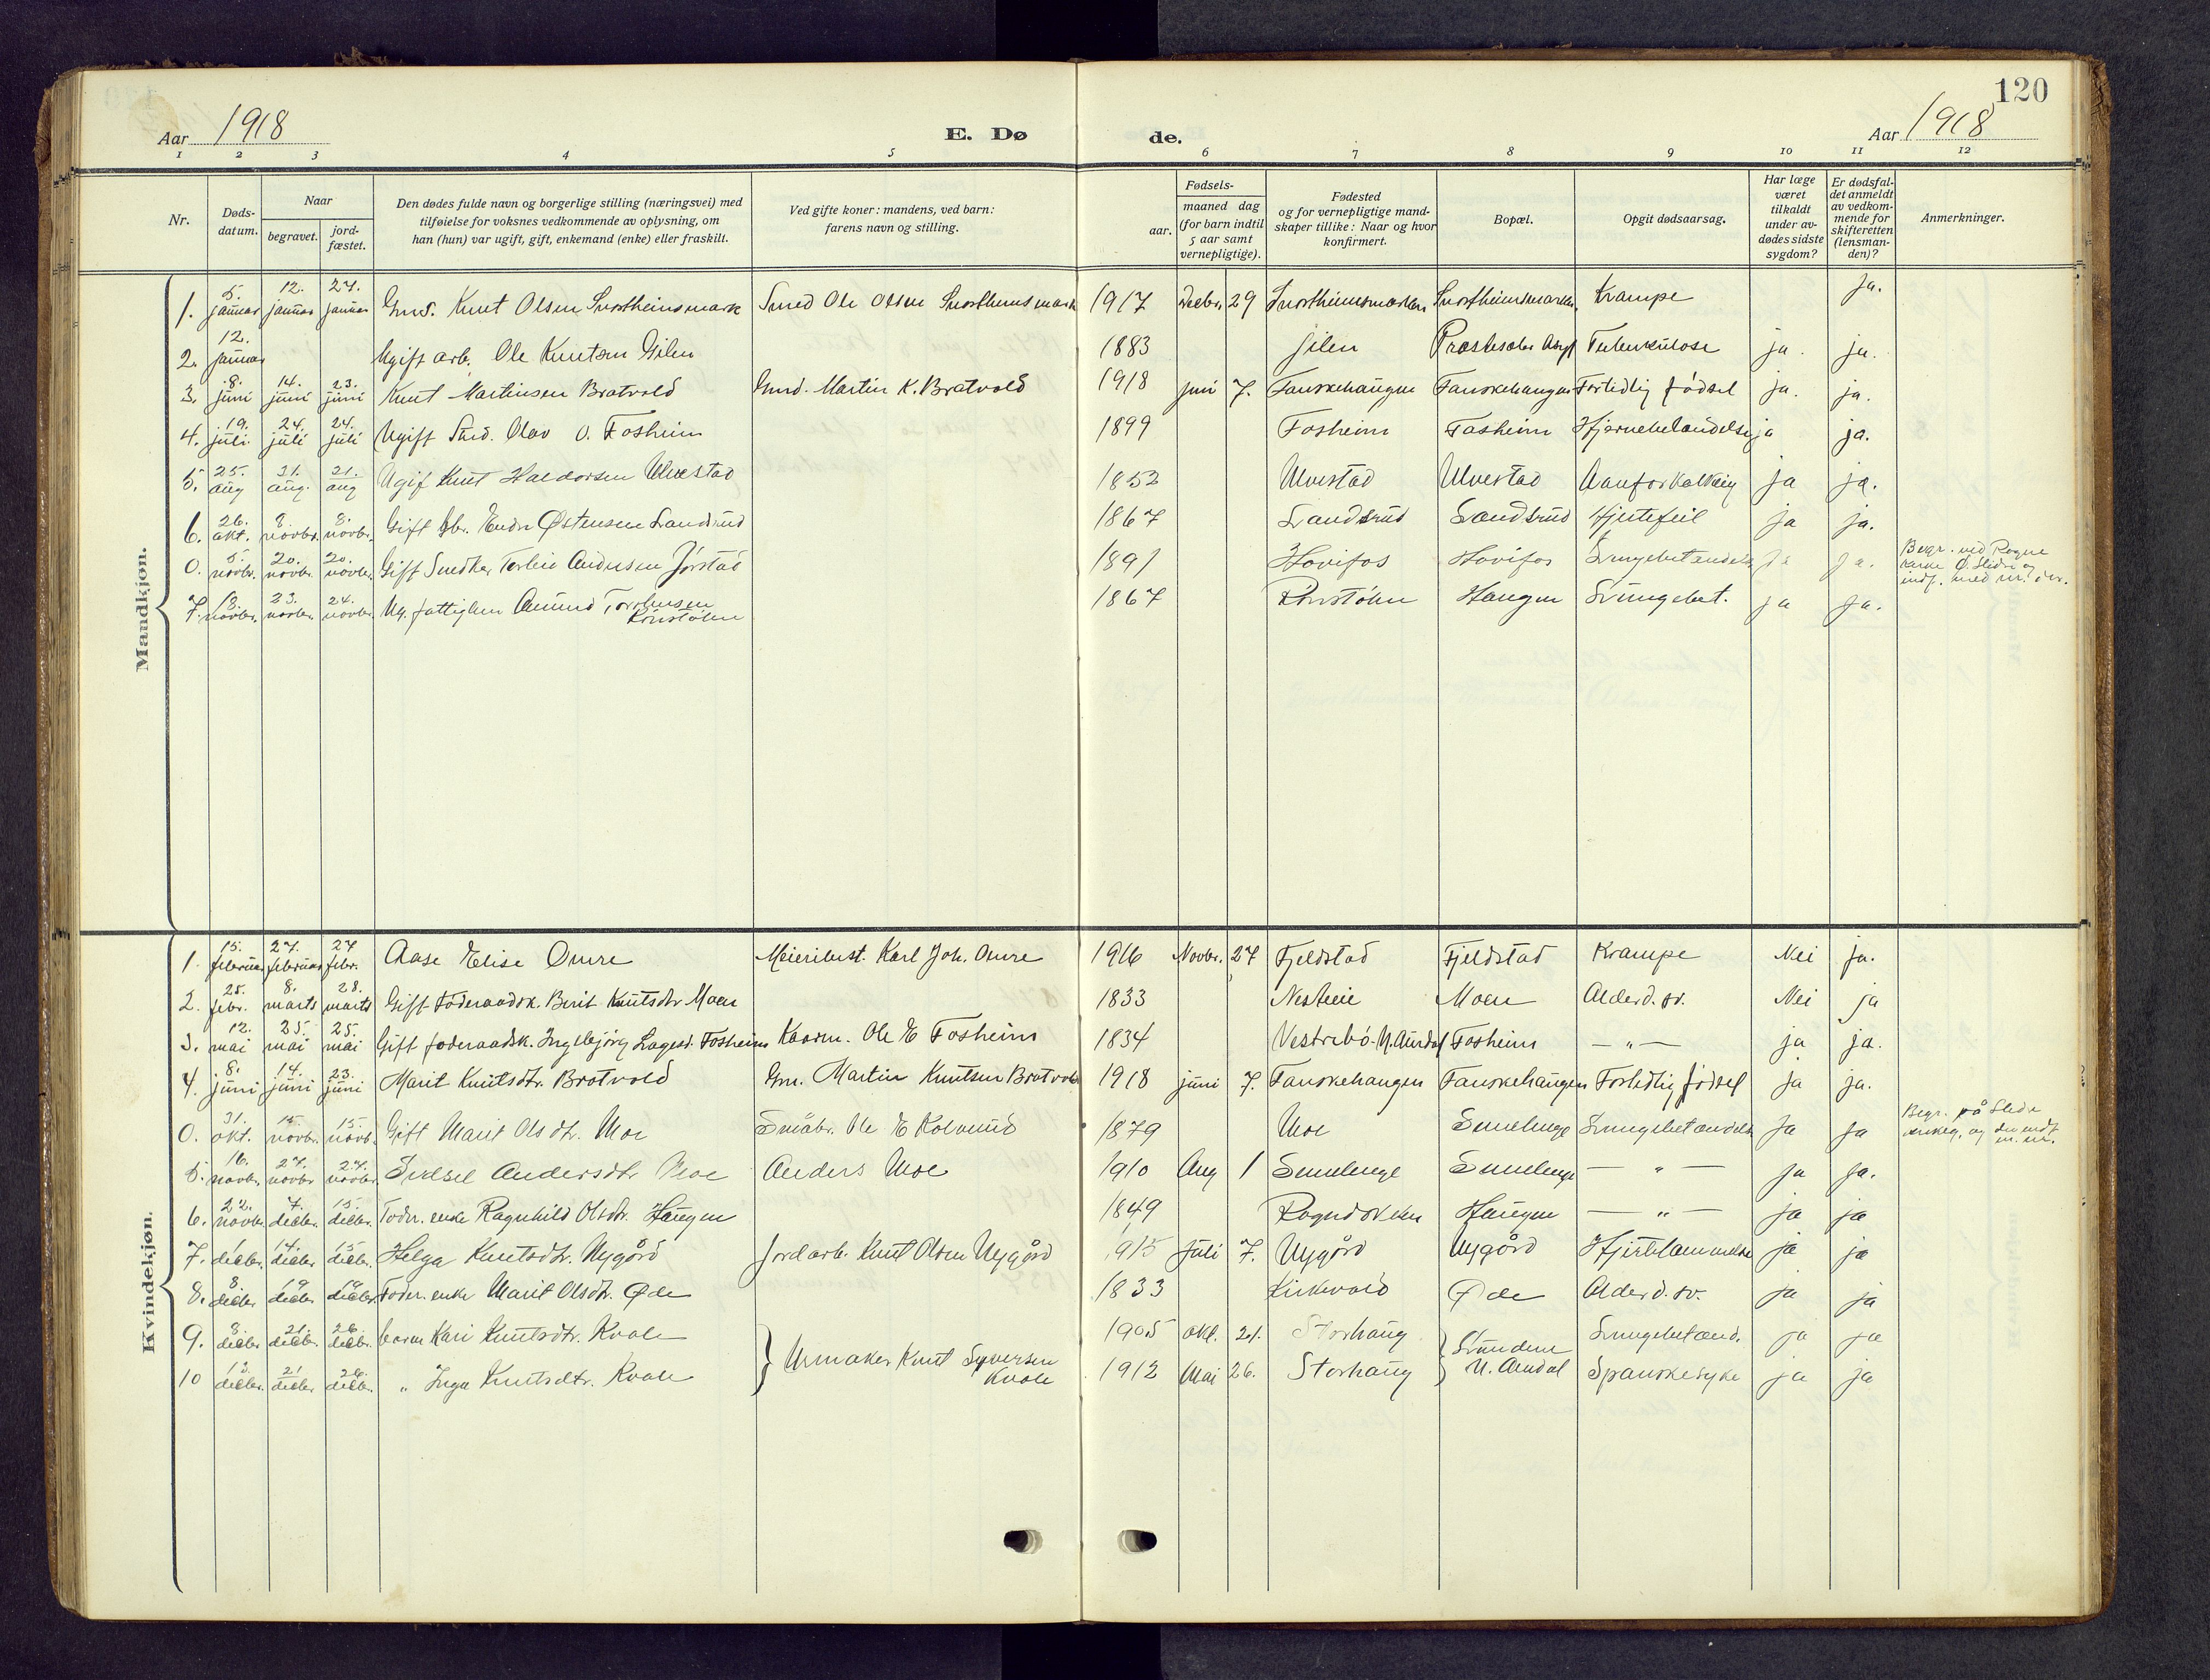 120
Aar 1918
E. Dø
de.
Aar 1918
1 2 3 4 5 6 7 8 9 10 11 12
Nr.
Døds-
datum.
Naar
begravet.
jord-
fæstet.
Den dødes fulde navn og borgerlige stilling (næringsvei) med
tilføielse for voksnes vedkommende av oplysning, om
han (hun) var ugift, gift, enkemand (enke) eller fraskilt.
Ved gifte koner: mandens, ved barn:
farens navn og stilling.
Fødsels-
aar.
maaned dag
(for barn indtil
5 aar samt
vernepligtige).
Fødested
og for vernepligtige mand-
skaper tillike: Naar og hvor
konfirmert.
Bopæl.
Opgit dødsaarsag.
Har læge
været
tilkaldt
under av-
dødes sidste
sygdom?
Er dødsfal-
det anmeldt
av vedkom-
mende for
skifteretten
(lensman-
den)?
Anmerkninger.
Mandkjøn.
1. 5. januar 12. januar 27. januar Gmd. Knut Olsen Snortheimsmark Smed Ole Olsen Snortheimsmark 1917 Decbr. 29 Snortheimsmarken Snortheimsmarken Krampe ja.
2. 12. januar Ugift arb. Ole Knutsen Gilen 1883 Gilen Tuberkulose ja. ja.
3. 8. juni 14. juni 23. juni Knut Martinsen Bratvold Gmd. Martin K. Bratvold 1918 juni 7. Fauskehaugen Fauskehaugen Fortidlig fødsel ja. ja.
4. 19. juli 24. juli 24. juli Ugift Olav O. Fosheim 1899 Fosheim Fosheim Hjernebetændelse ja ja.
5. 25. aug 31. aug. 31. aug Ugif Knut Haldorsen Ulvestad 1852 Ulvestad Ulvestad Aareforkalkning ja ja.
6. 26. okt. 8. novbr. 8. novbr. Gift Endre Østensen Landsrud 1867 Landsrud Landsrud Hjertefeil ja ja.
0. 5. novbr. 20. novbr. 20. novbr. Gift Snedker Andersen Jørstad 1891 Hovifos Hovifos Lungebetændelse ja ja. Begr. ved Rogne
kirke Ø. Slidre og
indf. med nr. der.
7. 18. novbr. 23. novbr. 24. novbr. Ug. fattiglem Amund
1867 Haugen Lungebet. ja ja.
Kvindekjøn.
1. 15. februar 27. februar 27 febr. Aase Elise Omre Meieribest. Karl Joh. Omre 1916 Novbr. 27 Fjeldstad Fjeldstad Krampe Nei ja.
2. 25. febr. 8. marts 28. marts Gift Føderaadsk. Berit Knutsdtr Moen 1833 Moen Alderd. sv. Nei ja
3. 12. mai 25. mai 25. mai Gift føderaadsk. Ingebjørg Lagesd. Fosheim Kaarm. Ole E Fosheim 1834 Vestrebø N. Aurdal Fosheim — „ — ja ja.
4. 8. juni 14. juni 23. juni Marit Knutsdtr. Bratvold Gm. Martin Knutsen Bratvold 1918 juni 7. Fauskehaugen Fauskehaugen Fortidlig fødsel ja ja.
0. 31. okt. 15. novbr. 15. novb. Gift Marit Olsdtr. Moe Småbr. Ole E Kolrund 1879 Moe Lungebetændelse ja ja Begr. på Slidre
5. 16. novbr. 27. novbr 27. novbr. Sidsel Andersdtr Moe Anders Moe 1910 Aug 1 — „ — ja ja.
6. 22. novbr. 7. decbr. 15. decbr. Føder. enke Ragnhild Olsdtr. Haugen 1849 Haugen — „ — ja ja
7. 1 decbr. 14. decbr 15 decbr. Helga Knutsdtr. Nygård Jordarb. Knut Olsen Nygård 1915 juli 7. Nygård Nygård Hjertelammelse ja ja
8. 8. decbr 19 decbr 19 decbr. Føder. enke Marit Olsdtr. Øde 1833 Kirkevold Øde Alderd. sv. ja ja
9. 8. decbr. 21. decbr. 26. decbr. barn Kari Knutsdtr. Kvale 1905 okt. 21. Storhaug Lungebetænd. ja ja
Urmaker Knut Syversen
Kvale
Strunden
N. Aurdal
10 12. decbr. 21 decbr 26. decbr. „ Inga Knutsdtr. Kvale 1912 Mai 26. Storhaug Spanskesyke ja ja